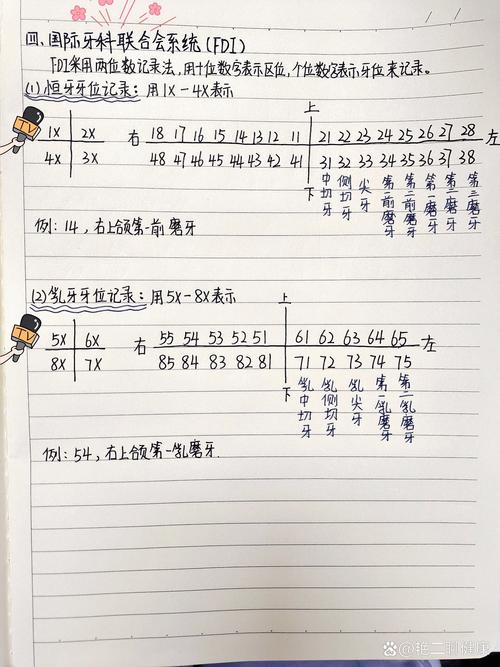 四、国际牙科联合会系统(FDI)
FDI采用两位数记录法,用十位数字表示区位,个位数字表示牙位来记录。
(1)恒牙牙位记录:用1X-4X表示
上
TV
1X 2X
右 18 17 16 15 14 13 12 11 21 22 23 24 25 26 27 28 左
4X 3X
48 47 46 45 44 43 42 41 31 32 33 34 35 36 37 38
下 中切牙 侧切牙 尖牙 第一前磨牙 第二前磨牙 第一磨牙 第二磨牙 第三磨牙
例:14,右上颌第一前磨牙
(2)乳牙牙位记录:用5X-8X表示
上
TV
5X 6X
右 55 54 53 52 51 61 62 63 64 65 左
8X 7X
85 84 83 82 81 71 72 73 74 75
下 乳中切牙 乳侧切牙 乳尖牙 第一乳磨牙 第二乳磨牙
例:54,右上颌第一乳磨牙.
艳二聊健康